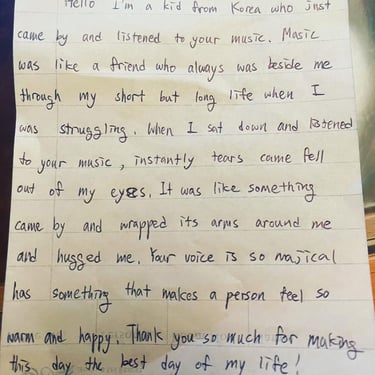 Hello I'm a kid from Korea who just
came by and listened to your music. Masic
was like a friend who always was beside me
through my short but long life when I
was struggling. When I sat down and listened
to your music, instantly tears came fell
out of my eyes. It was like something
came by and wrapped its arms around me
and hugged me. Your voice is so majical
has something that makes a person feel so
warm and happy. Thank you so much for making
this day the best day of my life!